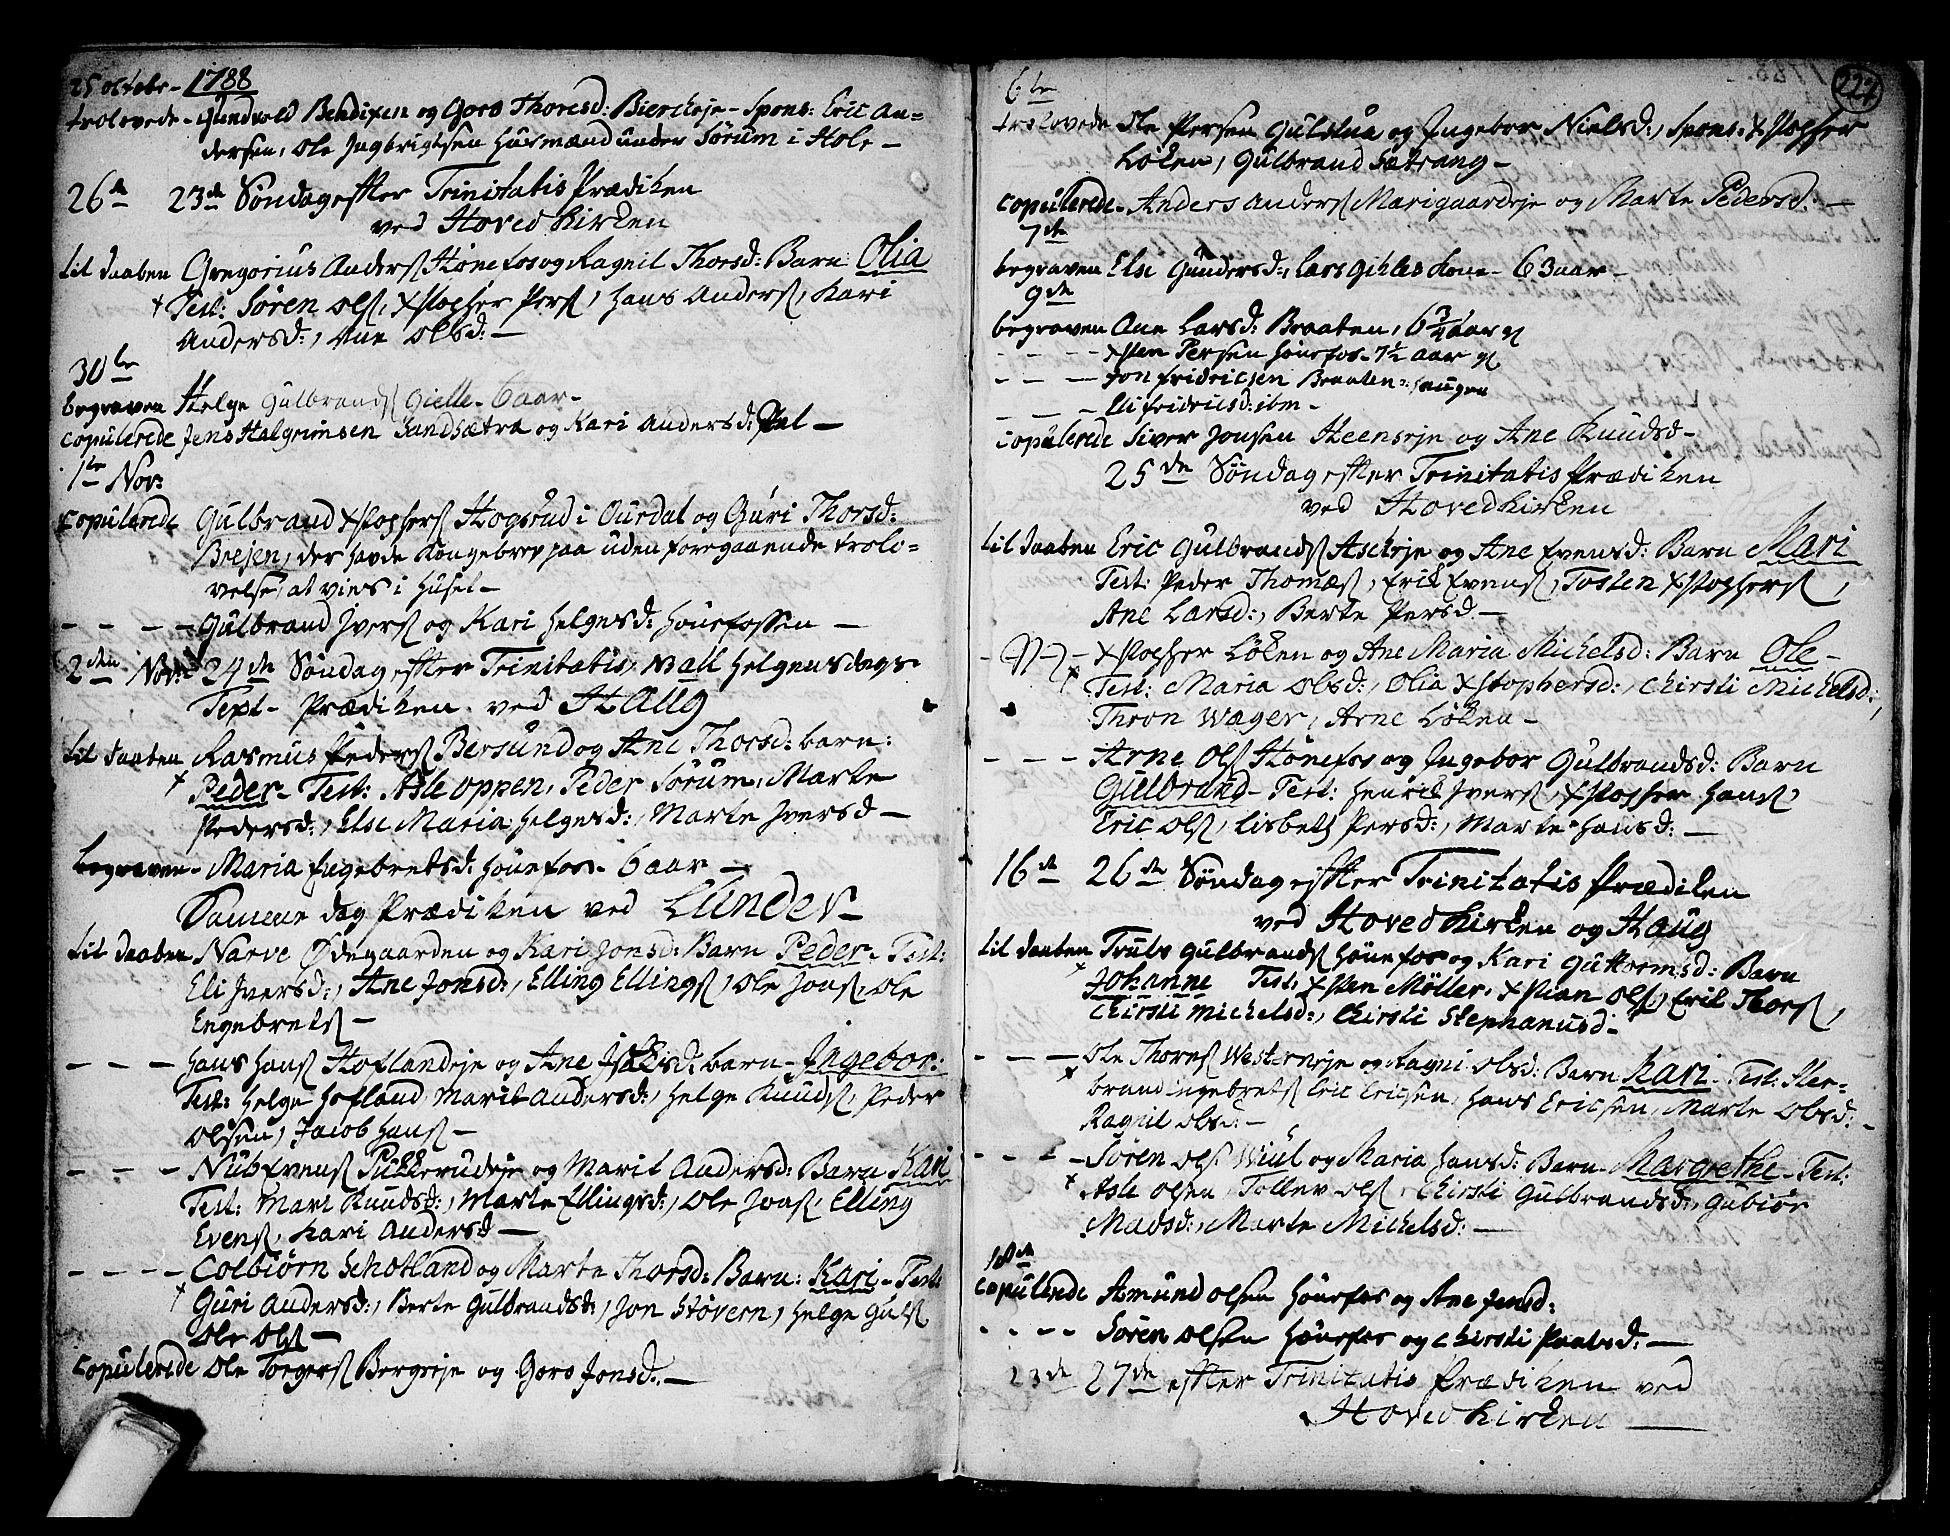 25 octobr - 1788
trolovede - Gundvold Bendixen og Goro Thoresd: Bierckeje - Spons: Eric An=
dersen, Ole Ingbrigtsen Husmænd under Sørum i Hole -
26de 23de Søndag efter Trinitatis Prædiken
ved Hoved Kirken
til daaben Gregorius Anders Hønefos og Ragnil Thorsd: Barn: Olia
+ Test: Søren Ols, Xstopher Pers, Hans Anders, Kari
Andersd:, Ane Olsd: -
30te
begraven Helge Gulbrands Gielle - 6 aar -
copulerede Jens Halgrimsen Sandsætra og Kari Andersd: Pal -
1te Nov:
copulerede Gulbrand Xstophers Hogsrud i Ourdal og Guri Thorsd:
Brejen, der havde Kongebrev paa uden foregaaende trolo=
velse, at vies i Huset -
- - - - Gulbrand Ivers og Kari Helgesd: Hønefossen -
2den Nov: 24de Søndag efter Trinitatis, Wall Helgensdags
Text - Prædiken ved Haug
til daaben Rasmus Peders Bersund og Ane Thorsd: barn:
+ Peder - Test: Asle Oppen, Peder Sørum, Marte
Pedersd:, Else Maria Helgesd:, Marte Iversd -
begraven - Maria Engebretsd: Hønefos - 6 aar -
Samme dag Prædiken ved Lunder -
til daaben Narve Ødegaarden og Kari Jonsd: Barn Peder - Test:
Eli Iversd:, Ane Jonsd:, Elling Ellings, Ole Jons, Ole
Engebrets -
- - - Hans Hans Hoflandeje og Ane Isaksd: barn - Ingebor:
Test: Helge Hofland Marit Andersd:, Helge Knuds, Peder
Olsen, Jacob Hans -
- - - Nub Evens Pukkerudeje og Marit Andersd: Barn Kari
Test: Mari Knudsd:, Marte Ellingsd:, Ole Jons, Elling
Evens, Kari Andersd -
- - - - Colbiørn Schotland og Marte Thorsd: Barn: Kari - Test:
+ Guri Andersd:, Berte Gulbrandsd:, Jon Støvern, Helge Guls
Ole Ols -
copulerede Ole Torgers Bergeje og Goro Jonsd: -
227
6te
trolovede Ole Persen Gulstua og Ingebor Nielsd:, Spons: Xstopher
Løken, Gulbrand Sætrang -
copulerede - Anders Anders Marigaardeje og Marte Pedersd: -
7de
begraven Else Gundersd:, Lars Gihles Kone - 63 aar -
9de
begraven Ane Larsd: Braaten, 6 3/4 aar gl
- - - Xsten Persen Hønefos - 7 1/2 aar gl
- - - Jon Fridricsen Braaten: Haugen
- - - Eli Fridricsd: ibm -
copulerede Siver Jonsen Heenseje og Ane Knudsd -
25de Søndag efter Trinitatis Prædiken
ved Hoved Kirken
til daaben Eric Gulbrands Ascheje og Ane Evensd: Barn Mari
Test: Peder Thomæs, Erik Evens, Tosten Xstophers,
Ane Larsd:, Berte Persd -
- Xstopher Løken og Ane Maria Michelsd: Barn Ole -
+ Test: Maria Olsd:, Olia Xstophersd:, Chirsti Michelsd:,
Thron Wager, Arne Løken -
- - - Arne Ols Hønefos og Ingebor Gulbrandsd: Barn
Gulbrand - Test: Henrik Ivers, Xstopher Hans,
Eric Ols, Lisbeth Persd:, Marte Hansd: -
16de 26de Søndag efter Trinitatis Prædiken
ved Hoved Kirken og Haug
til daaben Truls Gulbrands Hønefos og Kari Guttormsd: Barn
+ Johanne Test: Xsten Möller, Xstian Ols, Erik Thors,
Chirsti Michelsd:, Chirsti Stephanusd -
- - - Ole Thores Westerneje og Ragni Olsd: Barn Kari - Test: Her=
+ brand Ingebrets Eric Ericsen, Hans Ericsen, Marte Olsd: -
Ragnil Olsd: -
- - - Søren Ols Wiul og Maria Hansd: Barn - Margrethe - Test:
+ Asle Olsen, Tollev Ols, Chirsti Gulbrandsd:, Gubiør
Madsd:, Marte Michelsd: -
18de
copulerede Amund Olsen Hønefos og Ane Jensd:
- - - - Søren Olsen Hønefos og Chirsti Paalsd: -
23de 27de efter Trinitatis Prædiken ved
Hoved Kirken -